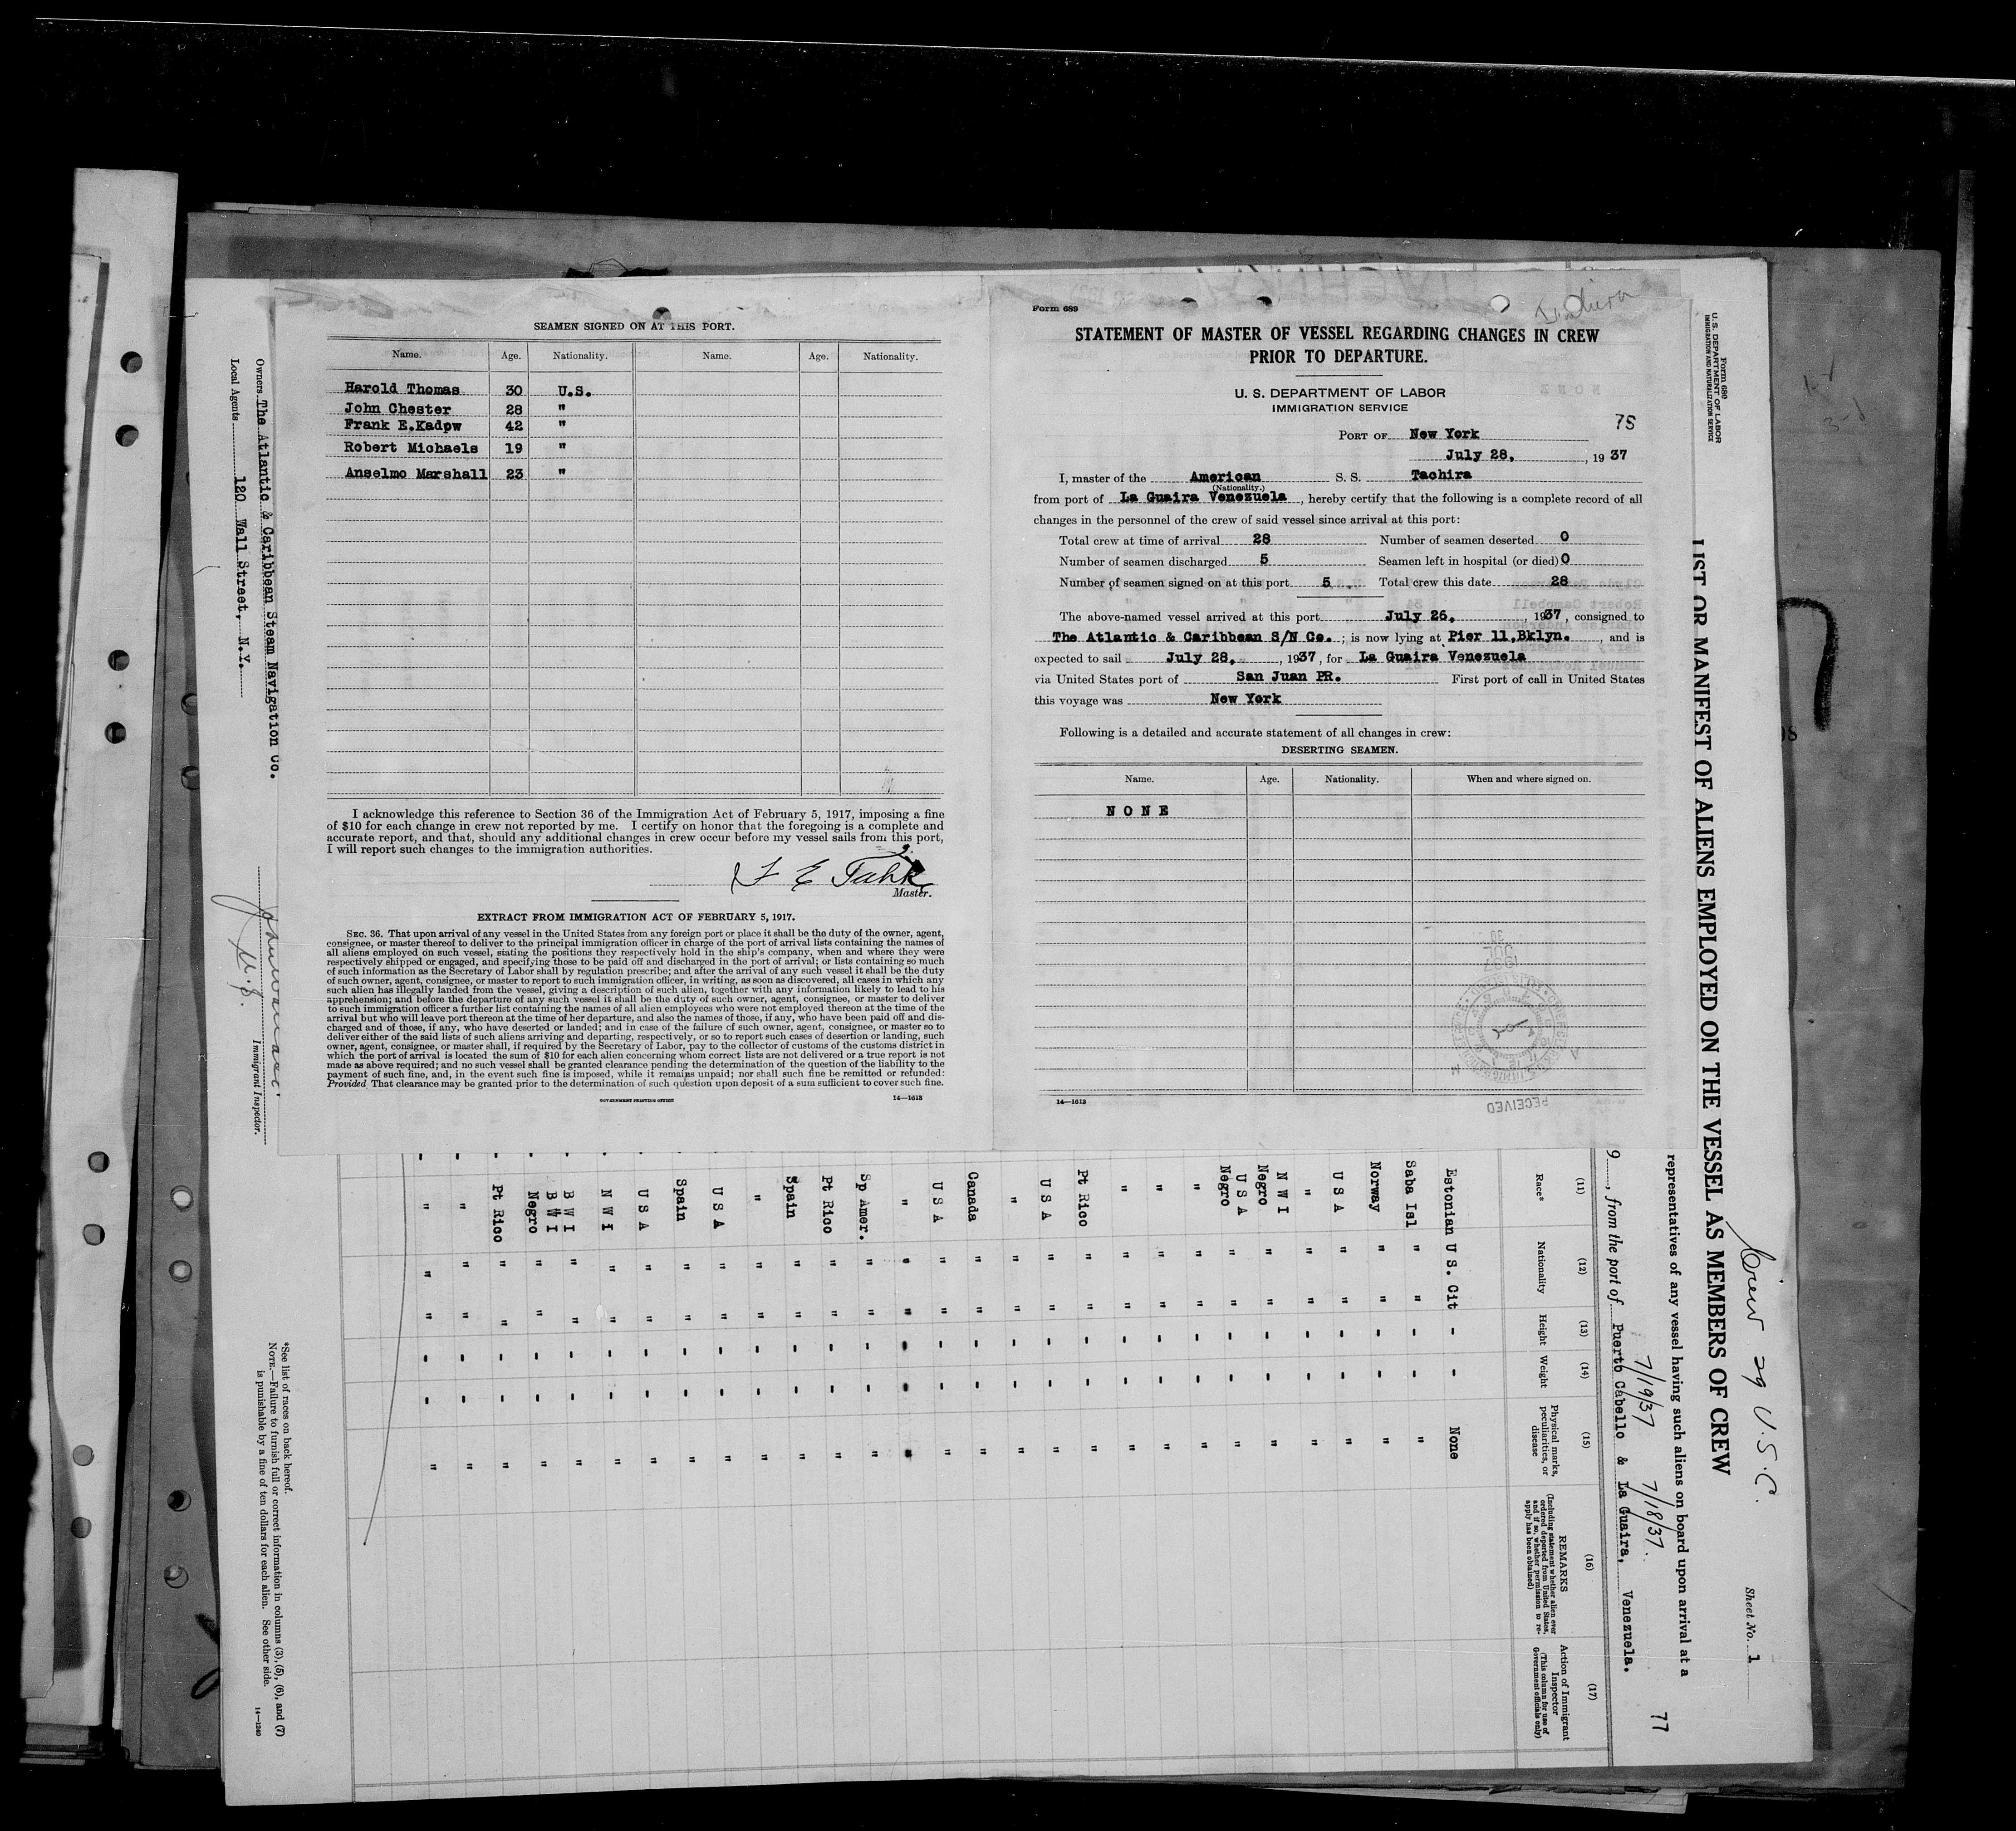 SEAMEN SIGNED ON AT THIS PORT.
Name. Age. Nationality. Name. Age. Nationality.
Harold Thomas 30 U.S.
John Chester 28 "
Frank E.Kadow 42 "
Robert Michaels 19 "
Anselmo Marshall 23 "
I acknowledge this reference to Section 36 of the Immigration Act of February 5, 1917, imposing a fine
of $10 for each change in crew not reported by me. I certify on honor that the foregoing is a complete and
accurate report, and that, should any additional changes in crew occur before my vessel sails from this port,
I will report such changes to the immigration authorities.
Master.
EXTRACT FROM IMMIGRATION ACT OF FEBRUARY 5, 1917.
SEC. 36. That upon arrival of any vessel in the United States from any foreign port or place it shall be the duty of the owner, agent,
consignee, or master thereof to deliver to the principal immigration officer in charge of the port of arrival lists containing the names of
all aliens employed on such vessel, stating the positions they respectively hold in the ship's company, when and where they were
respectively shipped or engaged, and specifying those to be paid off and discharged in the port of arrival; or lists containing so much
of such information as the Secretary of Labor shall by regulation prescribe; and after the arrival of any such vessel it shall be the duty
of such owner, agent, consignee, or master to report to such immigration officer, in writing, as soon as discovered, all cases in which any
such alien has illegally landed from the vessel, giving a description of such alien, together with any information likely to lead to his
apprehension; and before the departure of any such vessel it shall be the duty of such owner, agent, consignee, or master to deliver
to such immigration officer a further list containing the names of all alien employees who were not employed thereon at the time of the
arrival but who will leave port thereon at the time of her departure, and also the names of those, if any, who have been paid off and dis-
charged and of those, if any, who have deserted or landed; and in case of the failure of such owner, agent, consignee, or master so to
deliver either of the said lists of such aliens arriving and departing, respectively, or so to report such cases of desertion or landing, such
owner, agent, consignee, or master shall, if required by the Secretary of Labor, pay to the collector of customs of the customs district in
which the port of arrival is located the sum of $10 for each alien concerning whom correct lists are not delivered or a true report is not
made as above required; and no such vessel shall be granted clearance pending the determination of the question of the liability to the
payment of such fine, and, in the event such fine is imposed, while it remains unpaid; nor shall such fine be remitted or refunded:
Provided, That clearance may be granted prior to the determination of such question upon deposit of a sum sufficient to cover such fine.
GOVERNMENT PRINTING OFFICE 14—1613
Form 689
STATEMENT OF MASTER OF VESSEL REGARDING CHANGES IN CREW
PRIOR TO DEPARTURE.
U. S. DEPARTMENT OF LABOR
IMMIGRATION SERVICE
78
PORT OF New York
July 28, , 19 37
I, master of the American S. S. Tachira
(Nationality.)
from port of La Guaira Venezuela , hereby certify that the following is a complete record of all
changes in the personnel of the crew of said vessel since arrival at this port:
Total crew at time of arrival 28 Number of seamen deserted 0
Number of seamen discharged 5 Seamen left in hospital (or died) 0
Number of seamen signed on at this port 5 Total crew this date 28
The above-named vessel arrived at this port July 26, , 1937, consigned to
The Atlantic & Caribbean S/N Co. ; is now lying at Pier 11,Bklyn. , and is
expected to sail July 28, , 1937, for La Guaira Venezuela
via United States port of San Juan PR. First port of call in United States
this voyage was New York
Following is a detailed and accurate statement of all changes in crew:
DESERTING SEAMEN.
Name. Age. Nationality. When and where signed on.
N O N E
14—1613
RECEIVED
Form 680
U. S. DEPARTMENT OF LABOR
IMMIGRATION AND NATURALIZATION SERVICE
LIST OR MANIFEST OF ALIENS EMPLOYED ON THE VESSEL AS MEMBERS OF CREW
Crew 29 U.S.C.
Sheet No. 1
representatives of any vessel having such aliens on board upon arrival at a
7/19/37 7/18/37
77
9 , from the port of Puerto Cabello & La Guaira, Venezuela.
(11) (12) (13) (14) (15) (16) (17)
Race* Nationality Height Weight Physical marks, peculiarities, or disease REMARKS (Including statement whether alien ever ordered deported from United States, and if so, whether permission to reapply has been obtained) Action of Immigrant Inspector (This column for use of Government officials only)
Estonian U S. Cit - - None
Saba Isl " " - - "
Norway " " - - "
U S A " " - - "
" " " - - "
N W I Negro " " - - "
U S A Negro " " - - "
" " " - - "
" " " - - "
" " " - - "
Pt Rico " " - - "
U S A " " - - "
" " " - - "
Canada " " - - "
U S A " " - - "
" " " - - "
Sp Amer. " " - - "
Pt Rico " " - - "
Spain " " - - "
" " " - - "
U S A " " - - "
Spain " " - - "
U S A " " - - "
N W I " " - - "
B W I " " - - "
B W I Negro " " - - "
Pt Rico " " - - "
" " " - - "
" " " - - "
*See list of races on back hereof.
NOTE.—Failure to furnish full or correct information in columns (3), (5), (6), and (7)
is punishable by a fine of ten dollars for each alien. See other side. 14—1240
Owners The Atlantic & Caribbean Steam Navigation Co.
Local Agents 120 Wall Street, N.Y.
Immigrant Inspector.